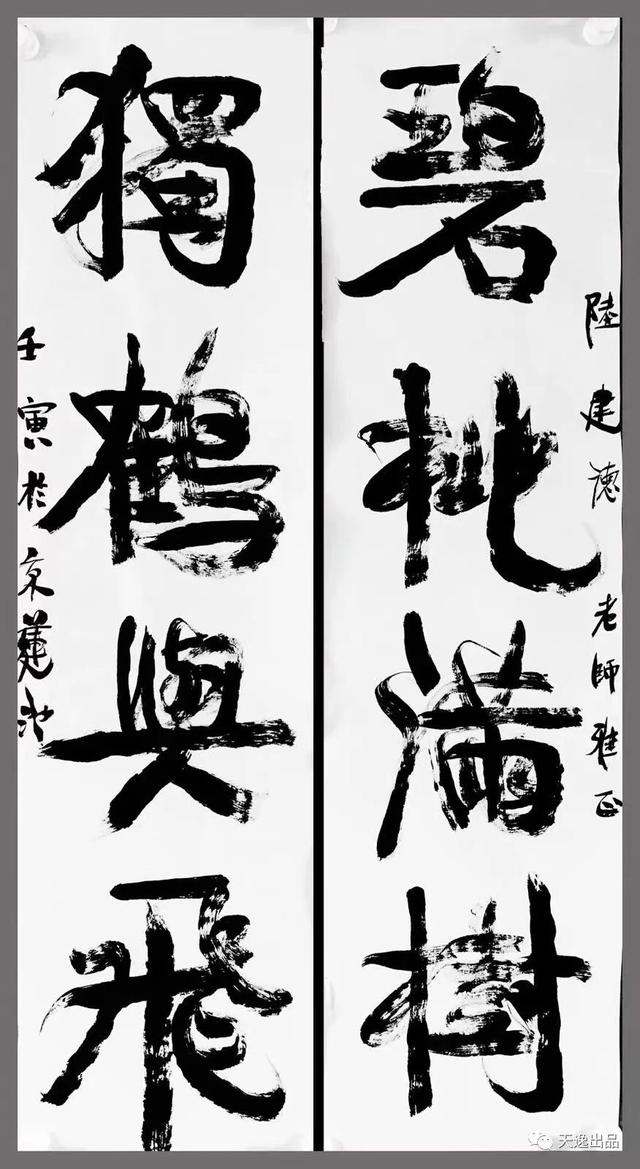 陸建德 老師雅正
碧桃滿樹
獨鶴與飛
壬寅於京蓮池
天逸出品